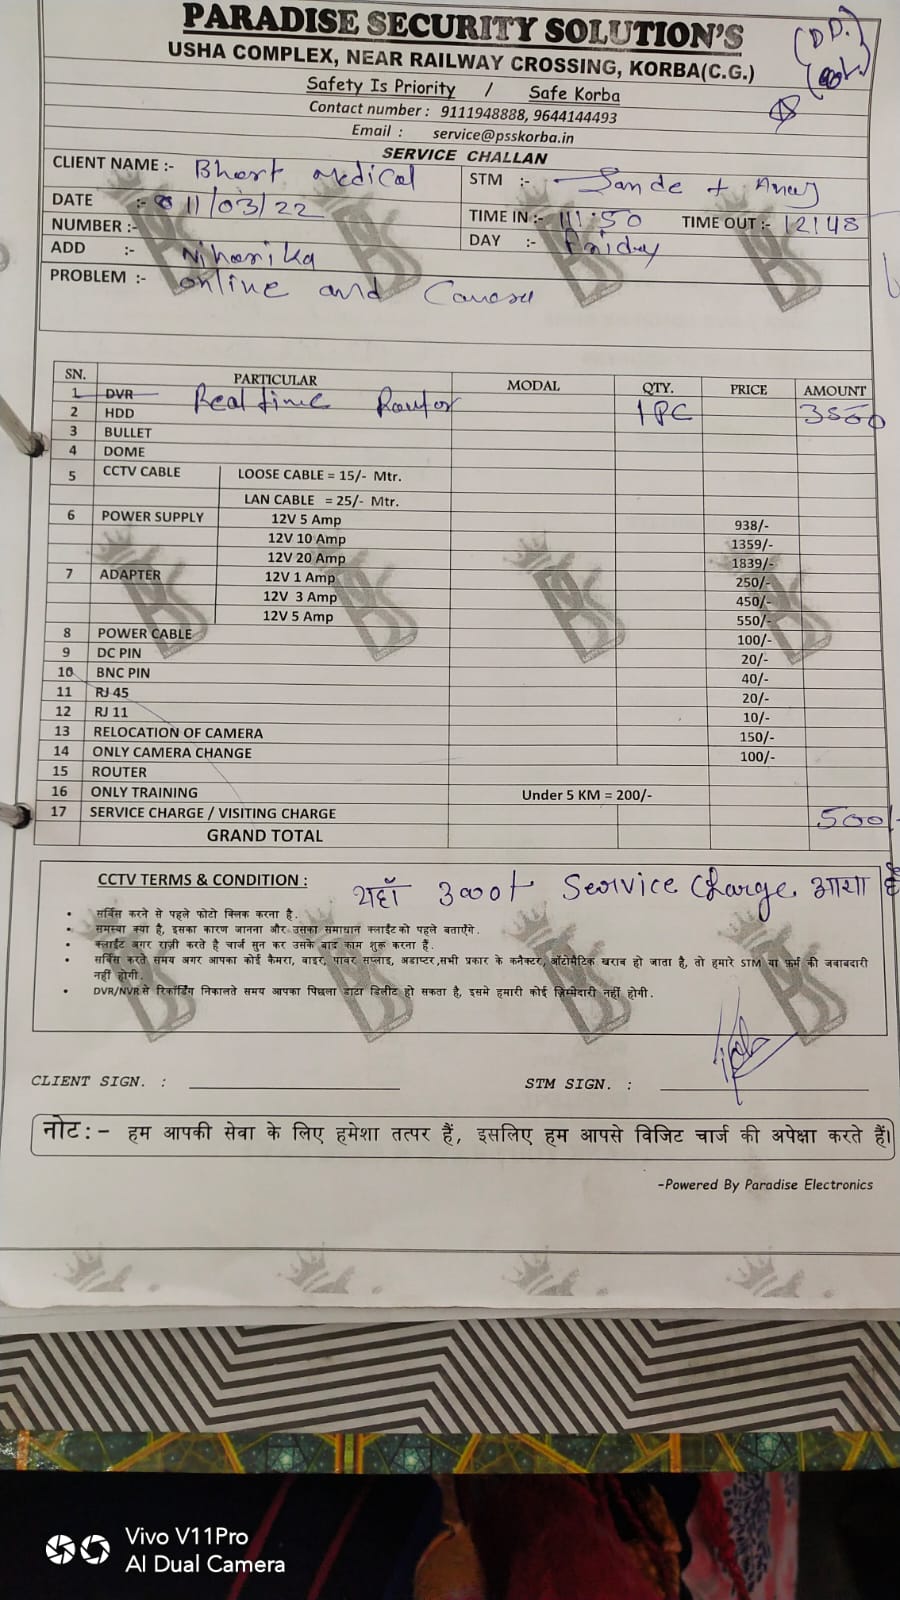 PARADISE SECURITY SOLUTION'S
USHA COMPLEX, NEAR RAILWAY CROSSING, KORBA(C.G.)
Safety Is Priority / Safe Korba
Contact number : 9111948888, 9644144493
Email : service@psskorba.in
SERVICE CHALLAN
CLIENT NAME :- Bhart medical STM :-
DATE :- 11/03/22 TIME IN :- 11:50 TIME OUT :- 12:48
NUMBER :- DAY :- friday
ADD :- Niharika
PROBLEM :- online and Camera
SN. PARTICULAR MODAL QTY. PRICE AMOUNT
1 DVR Real time Router 1 PC 3500
2 HDD
3 BULLET
4 DOME
5 CCTV CABLE LOOSE CABLE = 15/- Mtr.
LAN CABLE = 25/- Mtr.
6 POWER SUPPLY 12V 5 Amp 938/-
12V 10 Amp 1359/-
12V 20 Amp 1839/-
7 ADAPTER 12V 1 Amp 250/-
12V 3 Amp 450/-
12V 5 Amp 550/-
8 POWER CABLE 100/-
9 DC PIN 20/-
10 BNC PIN 40/-
11 RJ 45 20/-
12 RJ 11 10/-
13 RELOCATION OF CAMERA 150/-
14 ONLY CAMERA CHANGE 100/-
15 ROUTER
16 ONLY TRAINING Under 5 KM = 200/-
17 SERVICE CHARGE / VISITING CHARGE 500/-
GRAND TOTAL
CCTV TERMS & CONDITION :
यहाँ 3000/- Service Charge आया है
• सर्विस करने से पहले फोटो क्लिक करना है.
• समस्या क्या है, इसका कारण जानना और उसका समाधान क्लाईंट को पहले बताऐंगे.
• क्लाईंट अगर राज़ी करते है चार्ज सुन कर उसके बाद काम शुरू करना है.
• सर्विस करते समय अगर आपका कोई कैमरा, वाइर, पावर सप्लाइ, अडाप्टर,सभी प्रकार के कनैक्टर, ऑटोमैटिक खराब हो जाता है, तो हमारे STM या फ़र्म की जवाबदारी
नहीं होगी.
• DVR/NVR से रिकॉर्डिंग निकालते समय आपका पिछला डाटा डिलीट हो सकता है, इसमे हमारी कोई ज़िम्मेदारी नहीं होगी.
CLIENT SIGN. : STM SIGN. :
नोट:- हम आपकी सेवा के लिए हमेशा तत्पर हैं, इसलिए हम आपसे विजिट चार्ज की अपेक्षा करते हैं।
-Powered By Paradise Electronics
Vivo V11Pro
AI Dual Camera